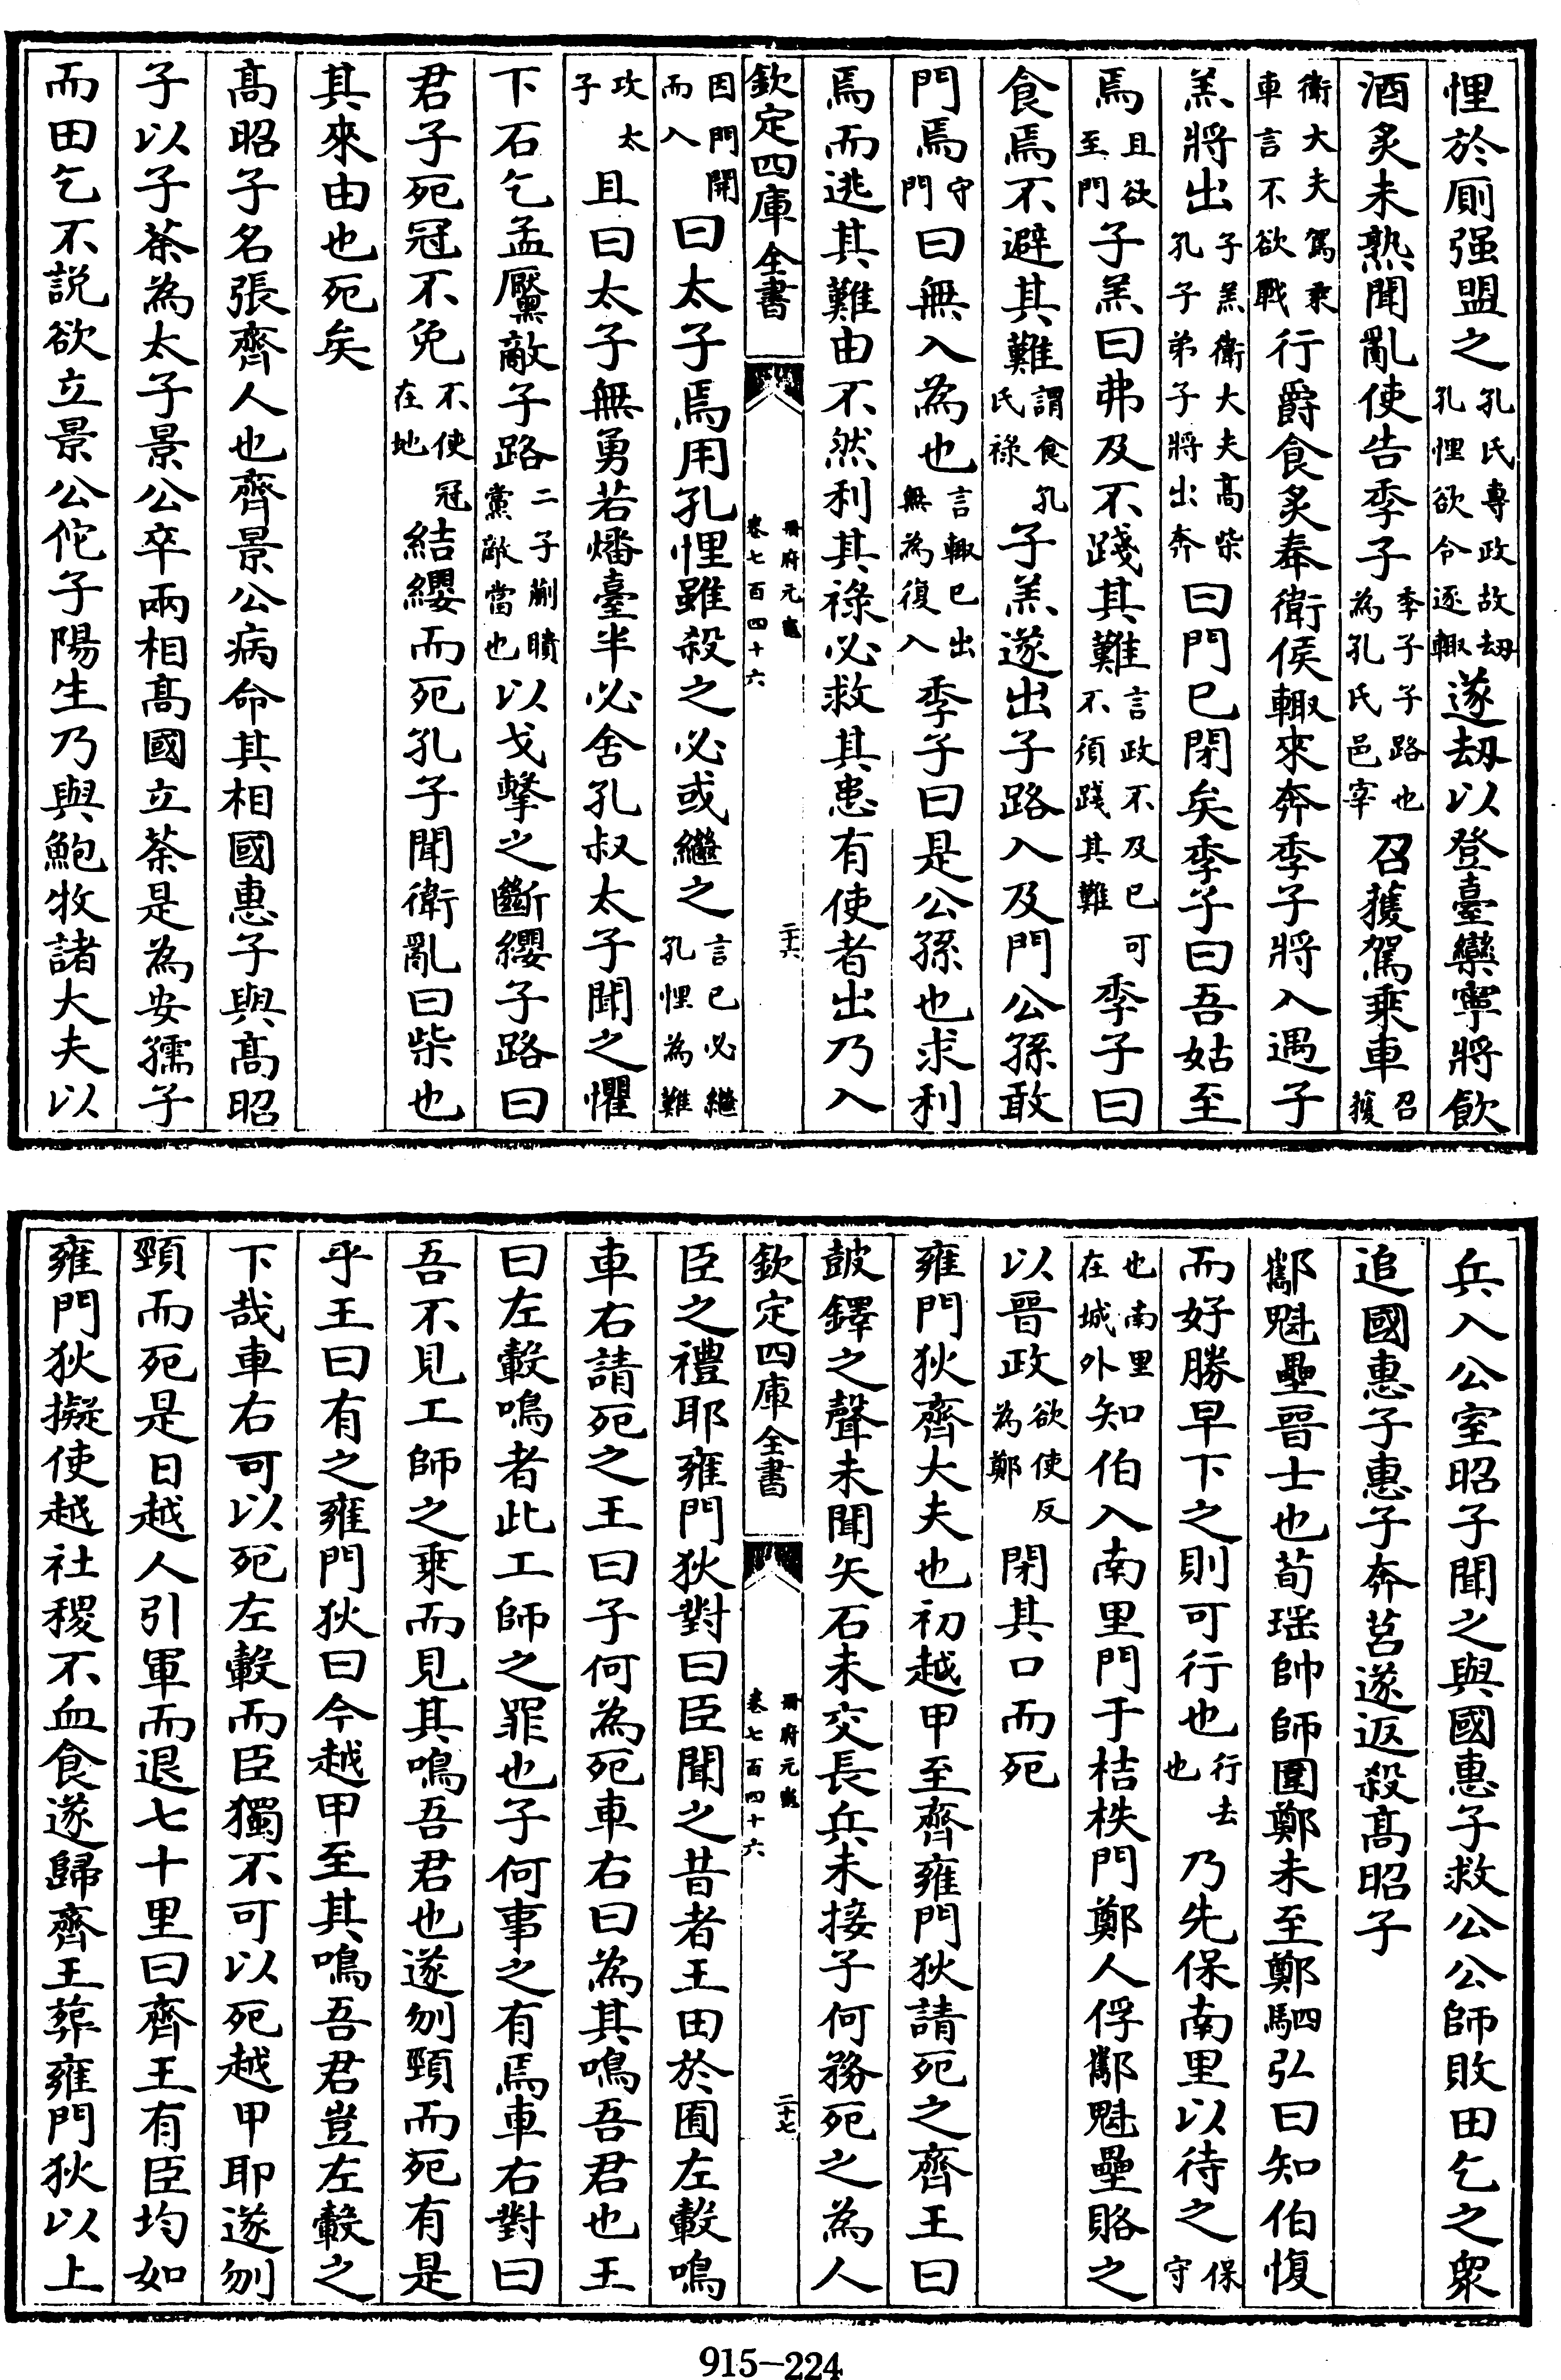 悝於厠强盟之孔氏專政故刼孔悝欲令逐輙遂刼以登臺欒寧將飲
酒炙未熟聞亂使告季子季子子路也為孔氏邑宰召獲駕乗車召獲
衛大夫駕乗車言不欲戰行爵食炙奉衛侯輙來奔季子將入遇子
羔將出子羔衛大夫髙柴孔子弟子將出奔曰門已閉矣季子曰吾姑至
焉且欲至門子羔曰弗及不踐其難言政不及已可不須踐其難季子曰
食焉不避其難謂食孔氏祿子羔遂出子路入及門公孫敢
門焉守門曰無入為也言輙已出無為復入季子曰是公孫也求利
焉而逃其難由不然利其祿必救其患有使者出乃入
欽定四庫全書 冊府元龜 卷七百四十六 二十六
因門開而入曰太子焉用孔悝雖殺之必或繼之言已必繼孔悝為難
攻太子且曰太子無勇若燔臺半必舍孔叔太子聞之懼
下石乞孟黶敵子路二子蒯聵黨敵當也以戈擊之斷纓子路曰
君子死冠不免不使冠在地結纓而死孔子聞衛亂曰柴也
其來由也死矣
髙昭子名張齊人也齊景公病命其相國惠子與髙昭
子以子荼為太子景公卒兩相髙國立荼是為安孺子
而田乞不説欲立景公佗子陽生乃與鮑牧諸大夫以
兵入公室昭子聞之與國惠子救公公師敗田乞之衆
追國惠子惠子奔莒遂返殺髙昭子
酅魁壘晉士也荀瑶帥師圍鄭未至鄭駟弘曰知伯愎
而好勝早下之則可行也行去也乃先保南里以待之保守
也南里在城外知伯入南里門于桔柣門鄭人俘酅魁壘賂之
以晉政欲使反為鄭閉其口而死
雍門狄齊大夫也初越甲至齊雍門狄請死之齊王曰
鼓鐸之聲未聞矢石未交長兵未接子何務死之為人
欽定四庫全書 冊府元龜 卷七百四十六 二十七
臣之禮耶雍門狄對曰臣聞之昔者王田於囿左轂鳴
車右請死之王曰子何為死車右曰為其鳴吾君也王
曰左轂鳴者此工師之罪也子何事之有焉車右對曰
吾不見工師之乗而見其鳴吾君也遂刎頸而死有是
乎王曰有之雍門狄曰今越甲至其鳴吾君豈左轂之
下哉車右可以死左轂而臣獨不可以死越甲耶遂刎
頸而死是日越人引軍而退七十里曰齊王有臣均如
雍門狄擬使越社稷不血食遂歸齊王葬雍門狄以上
915-224